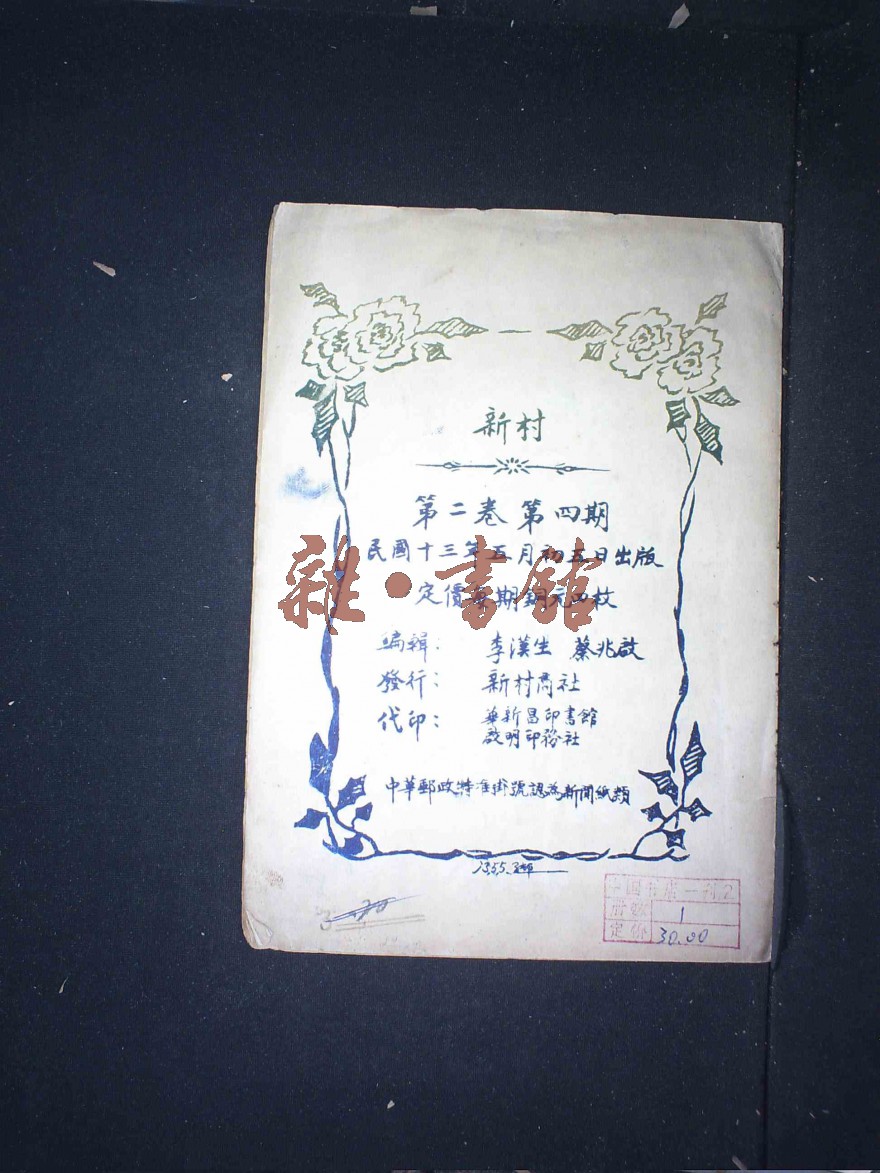 新村
第二卷 第四期
民國十三年五月初五日出版
定價每期銅元四枚
雜·書館
編輯： 李漢生 蔡兆啟
發行： 新村商社
代印： 華新昌印書館
啟明印務社
中華郵政特准掛號認為新聞紙類
中国书店一刊2
册数 1
定价 30.00